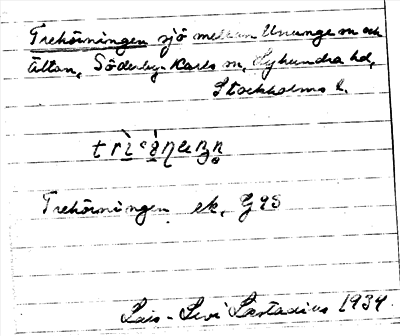 Trehörningen sjö mellan Ununge sn och
Ältan, Söderby-Karls sn, Lyhundra hd,
Stockholms l.
Trehörningen ek. G98
Lars-Levi Læstadius 1934.